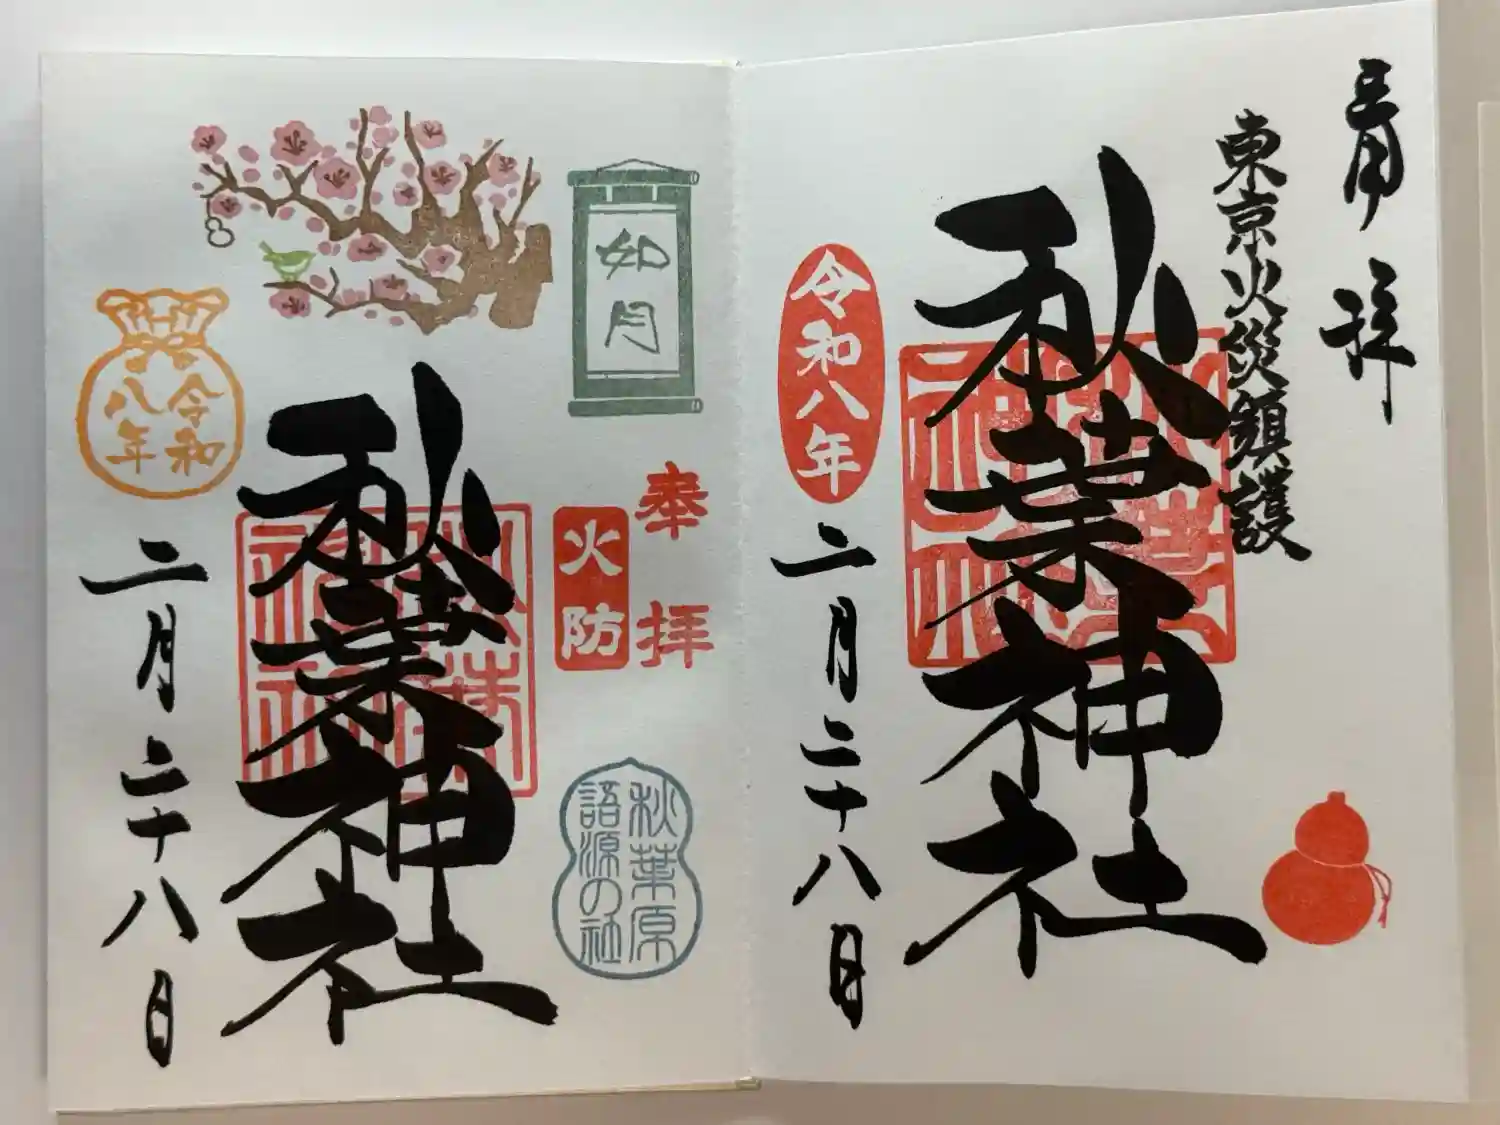 拝
東京火災鎮護
秋葉神社
令和八年
二月二十八日
如月
奉拝
火防
秋葉原
語源の社
秋葉神社
令和
八年
二月二十八日